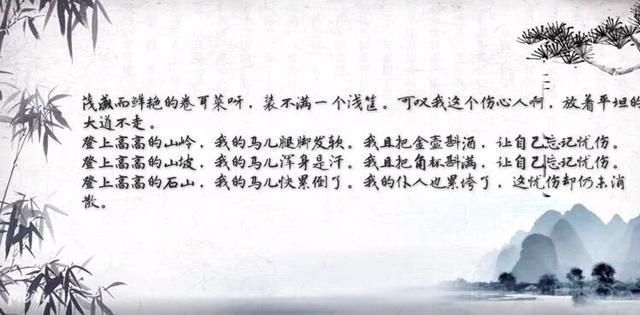 茂盛而鲜艳的卷耳菜呀，装不满一个浅筐。可叹我这个伤心人啊，放着平坦的
大道不走。
登上高高的山岭，我的马儿腿脚发软。我且把金壶斟酒，让自己忘记忧伤。
登上高高的山坡，我的马儿浑身是汗。我且把角杯斟满，让自己忘记忧伤。
登上高高的石山，我的马儿快累倒了。我的仆人也累垮了，这忧伤却仍未消
散。